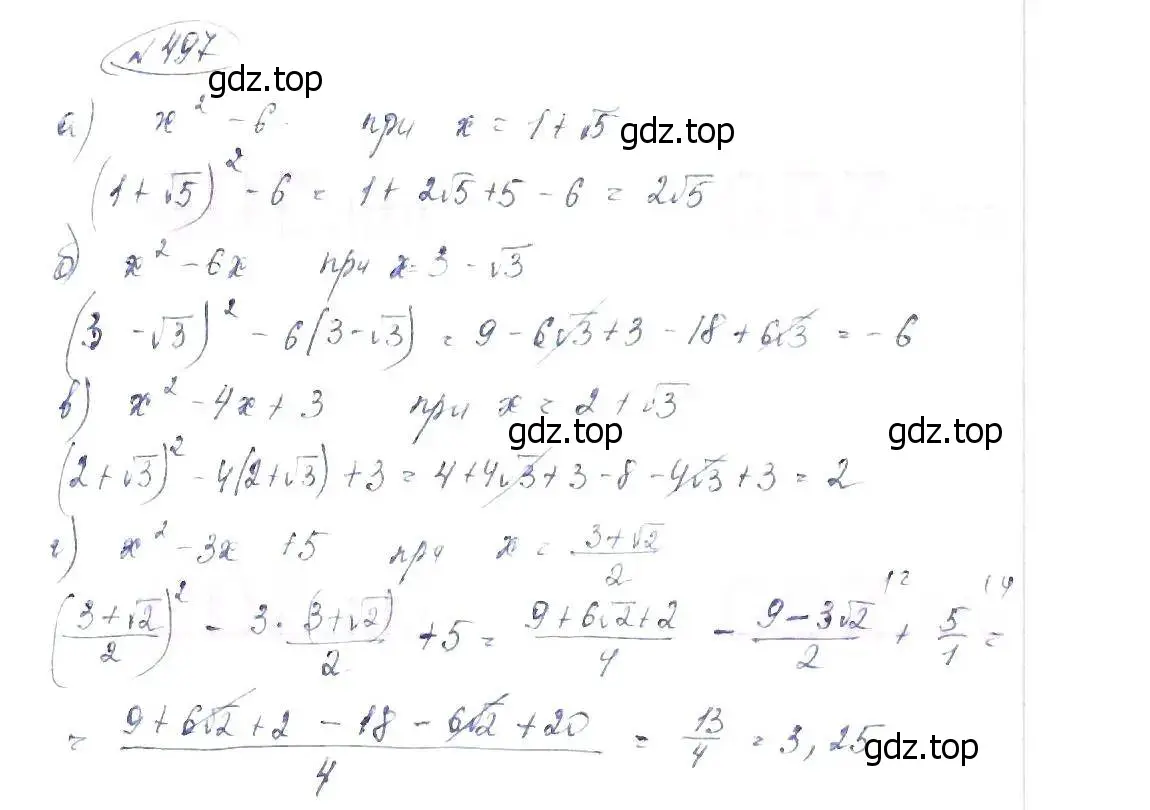 № 497
gdz.top
а) x² - 6 при x = 1 + √5 gdz.top
(1 + √5)² - 6 = 1 + 2√5 + 5 - 6 = 2√5
б) x² - 6x при x = 3 - √3
(3 - √3)² - 6(3 - √3) = 9 - 6√3 + 3 - 18 + 6√3 = - 6
в) x² - 4x + 3 при x = 2 + √3
gdz.top gdz.top
(2 + √3)² - 4(2 + √3) + 3 = 4 + 4√3 + 3 - 8 - 4√3 + 3 = 2
г) x² - 3x + 5 при x = (3 + √2)/2
((3 + √2)/2)² - 3 · (3 + √2)/2 + 5 = (9 + 6√2 + 2)/4 - (9 - 3√2)/2 |2 + 5/1 |4 =
= (9 + 6√2 + 2 - 18 - 6√2 + 20)/4 = 13/4 = 3,25 gdz.top